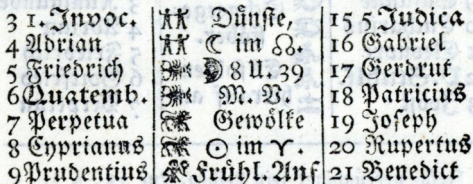 3 1. Invoc. Dünſte, 15 5 Judica
4 Adrian ☾ im ☊. 16 Gabriel
5 Friedrich 8 U. 39 17 Gerdrut
6 Quatemb. M. V. 18 Patricius
7 Perpetua Gewölke 19 Joſeph
8 Cyprianus ☉ im ♈. 20 Rupertus
9 Prudentius Frühl. Anf 21 Benedict